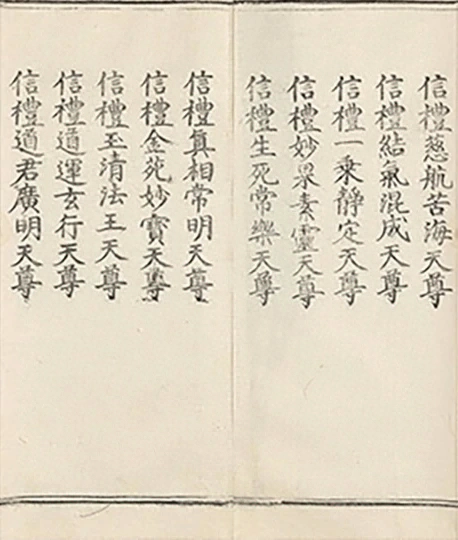 信禮慈航苦海天尊
信禮結氣混成天尊
信禮一乘靜定天尊
信禮妙果素靈天尊
信禮生死常樂天尊
信禮真相常明天尊
信禮金苑妙寶天尊
信禮玉清法王天尊
信禮道運玄行天尊
信禮道君廣明天尊